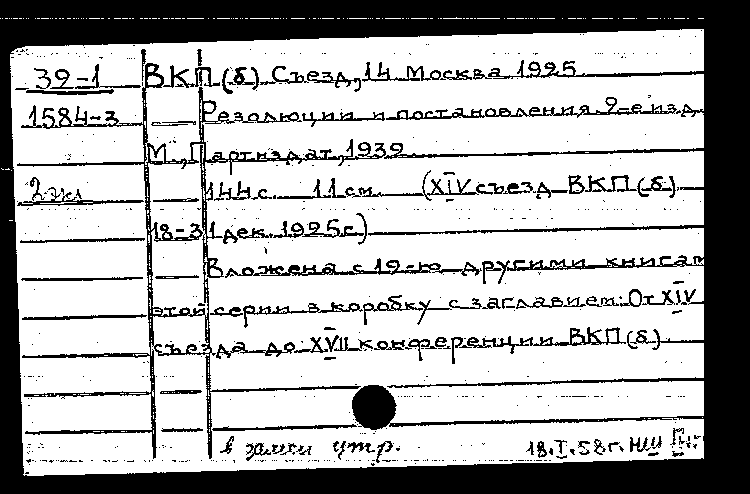 39-1 ВКП(б) Съезд, 14 Москва 1925
1584-3 Резолюции и постановления. 2-е изд.
М., Партиздат, 1939
2 экз 144 с. 11 см. (XIV съезд ВКП(б)
18-31 дек. 1925 г.)
Вложена с 19-ю другими книгам
этой серии в коробку с заглавием: От XIV
съезда до XVII конференции ВКП(б)
в утр.
18.I.58г.